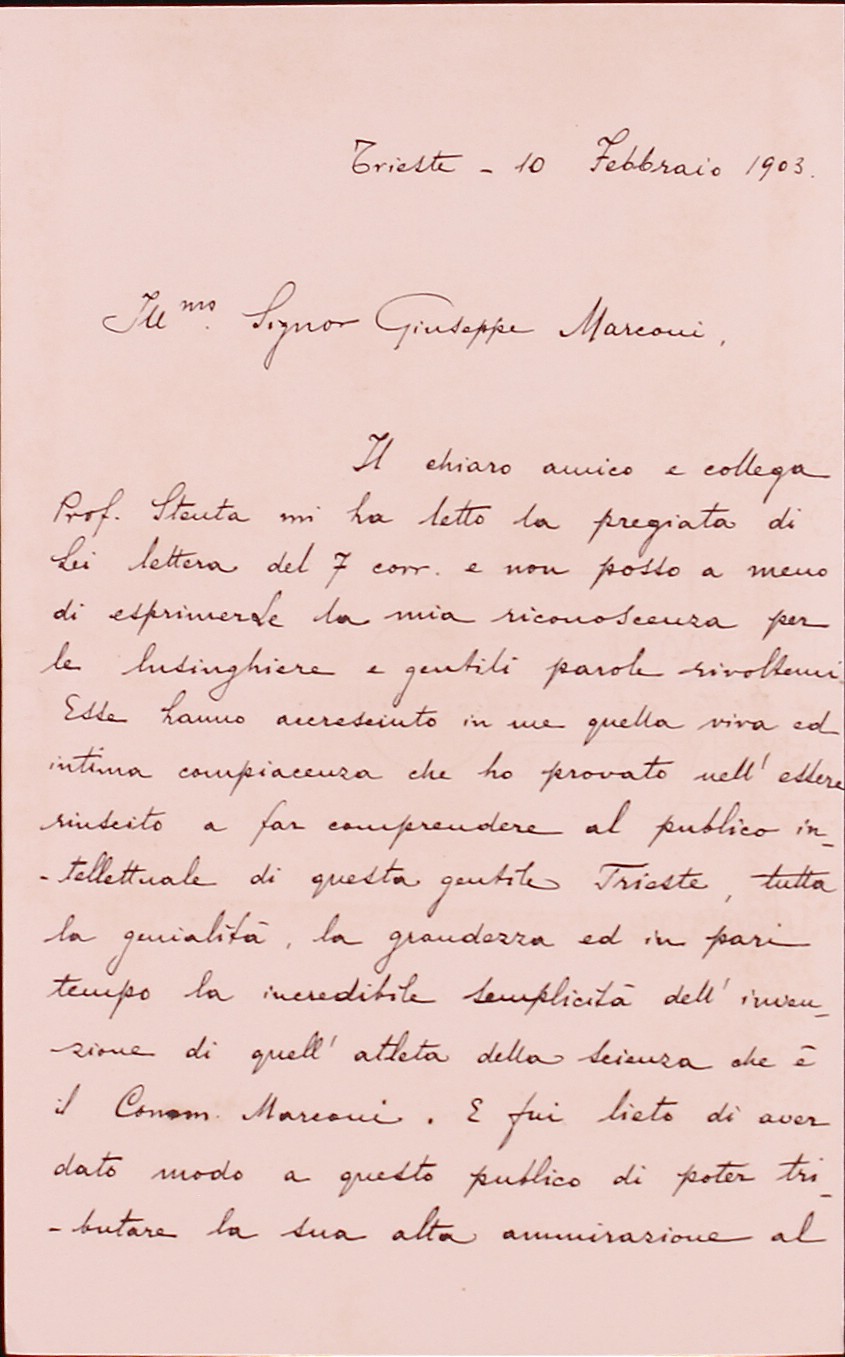 Trieste - 10 Febbraio 1903.
Ill.mo Signor Giuseppe Marconi,
Il chiaro amico e collega
Prof. Stenta mi ha letto la pregiata di
Lei lettera del 7 corr. e non posso a meno
di esprimerLe la mia riconoscenza per
le lusinghiere e gentili parole rivoltemi.
Esse hanno accresciuto in me quella viva ed
intima compiacenza che ho provato nell' essere
riuscito a far comprendere al publico in-
-tellettuale di questa gentile Trieste, tutta
la genialità, la grandezza ed in pari
tempo la incredibile semplicità dell' inven-
zione di quell' atleta della scienza che è
il Comm. Marconi. E fui lieto di aver
dato modo a questo publico di poter tri-
-butare la sua alta ammirazione al